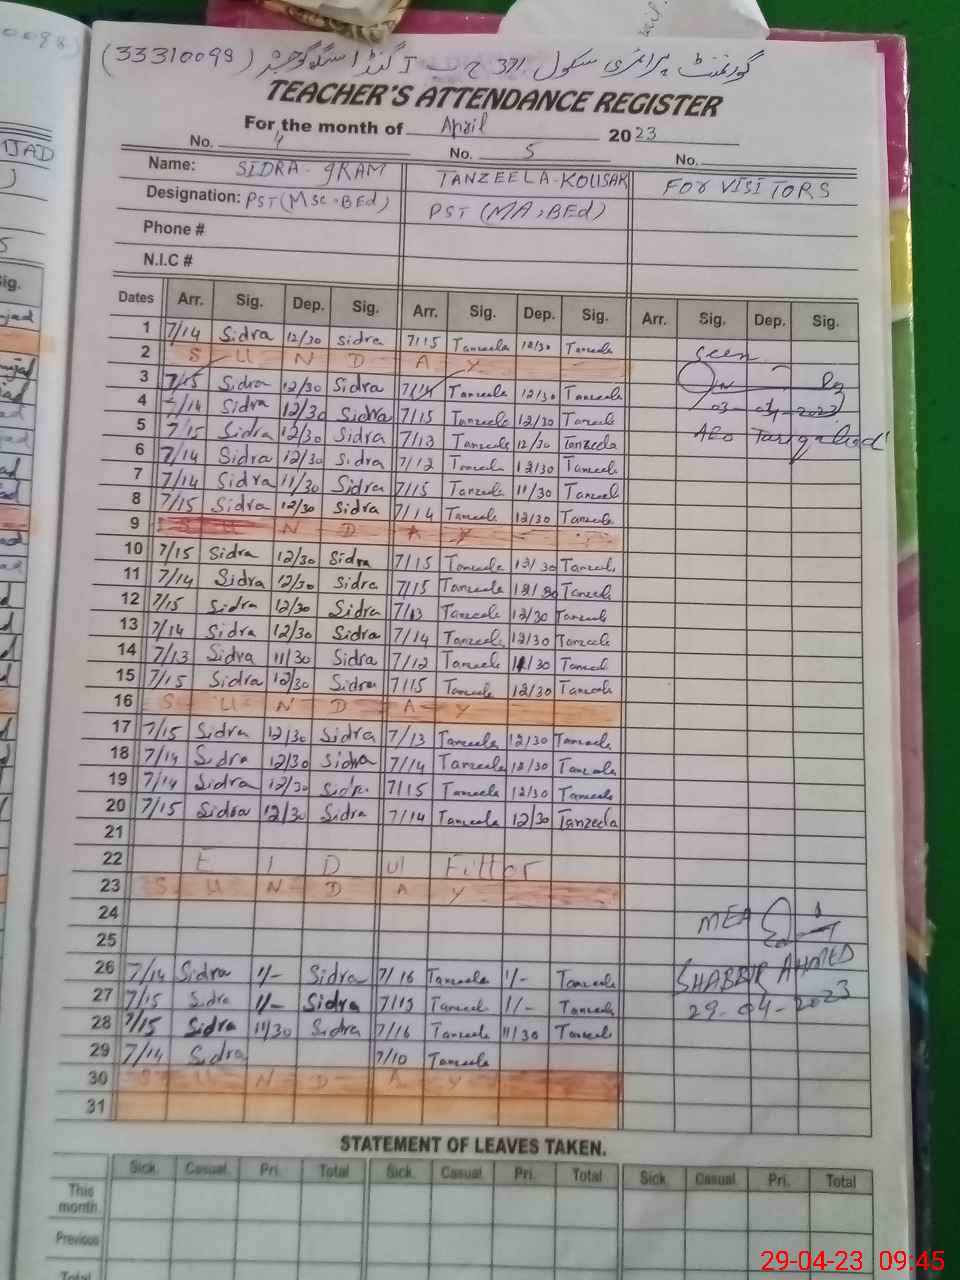 (33310098) گورنمنٹ پرائمری سکول 371 ج
TEACHER'S ATTENDANCE REGISTER
For the month of April 2023
No. 4 No. 5 No.
Name: SIDRA-IKRAM TANZEELA-KOUSAR FOR VISITORS
Designation: PST(MSc.BEd) PST (MA,BEd)
Phone #
N.I.C #
Dates Arr. Sig. Dep. Sig. Arr. Sig. Dep. Sig. Arr. Sig. Dep. Sig.
1 7/14 Sidra 12/30 Sidra 7/15 Tanzeela 12/30 Tanzeela Seen
2 S U N D A Y
3 7/15 Sidra 12/30 Sidra 7/14 Tanzeela 12/30 Tanzeela
4 7/14 Sidra 12/30 Sidra 7/15 Tanzeela 12/30 Tanzeela 03-04-2023
5 7/15 Sidra 12/30 Sidra 7/13 Tanzeela 12/30 Tanzeela AEO
6 7/14 Sidra 12/30 Sidra 7/12 Tanzeela 12/30 Tanzeela
7 7/14 Sidra 11/30 Sidra 7/15 Tanzeela 11/30 Tanzeela
8 7/15 Sidra 12/30 Sidra 7/14 Tanzeela 12/30 Tanzeela
9 S U N D A Y
10 7/15 Sidra 12/30 Sidra 7/15 Tanzeela 12/30 Tanzeela
11 7/14 Sidra 12/30 Sidra 7/15 Tanzeela 12/30 Tanzeela
12 7/15 Sidra 12/30 Sidra 7/13 Tanzeela 12/30 Tanzeela
13 7/14 Sidra 12/30 Sidra 7/14 Tanzeela 12/30 Tanzeela
14 7/13 Sidra 11/30 Sidra 7/12 Tanzeela 11/30 Tanzeela
15 7/15 Sidra 12/30 Sidra 7/15 Tanzeela 12/30 Tanzeela
16 S U N D A Y
17 7/15 Sidra 12/30 Sidra 7/13 Tanzeela 12/30 Tanzeela
18 7/14 Sidra 12/30 Sidra 7/14 Tanzeela 12/30 Tanzeela
19 7/14 Sidra 12/30 Sidra 7/15 Tanzeela 12/30 Tanzeela
20 7/15 Sidra 12/30 Sidra 7/14 Tanzeela 12/30 Tanzeela
21
22 E I D ul Fitter
23 S U N D A Y
24 MEA
25
26 7/14 Sidra 1/- Sidra 7/16 Tanzeela 1/- Tanzeela SHABBIR AHMED
27 7/15 Sidra 1/- Sidra 7/13 Tanzeela 1/- Tanzeela 29-04-2023
28 7/15 Sidra 11/30 Sidra 7/16 Tanzeela 11/30 Tanzeela
29 7/14 Sidra 7/10 Tanzeela
30 S U N D A Y
31
STATEMENT OF LEAVES TAKEN.
Sick. Casual. Pri. Total Sick. Casual. Pri. Total Sick. Casual. Pri. Total
This month.
Previous
Total
29-04-23 09:45